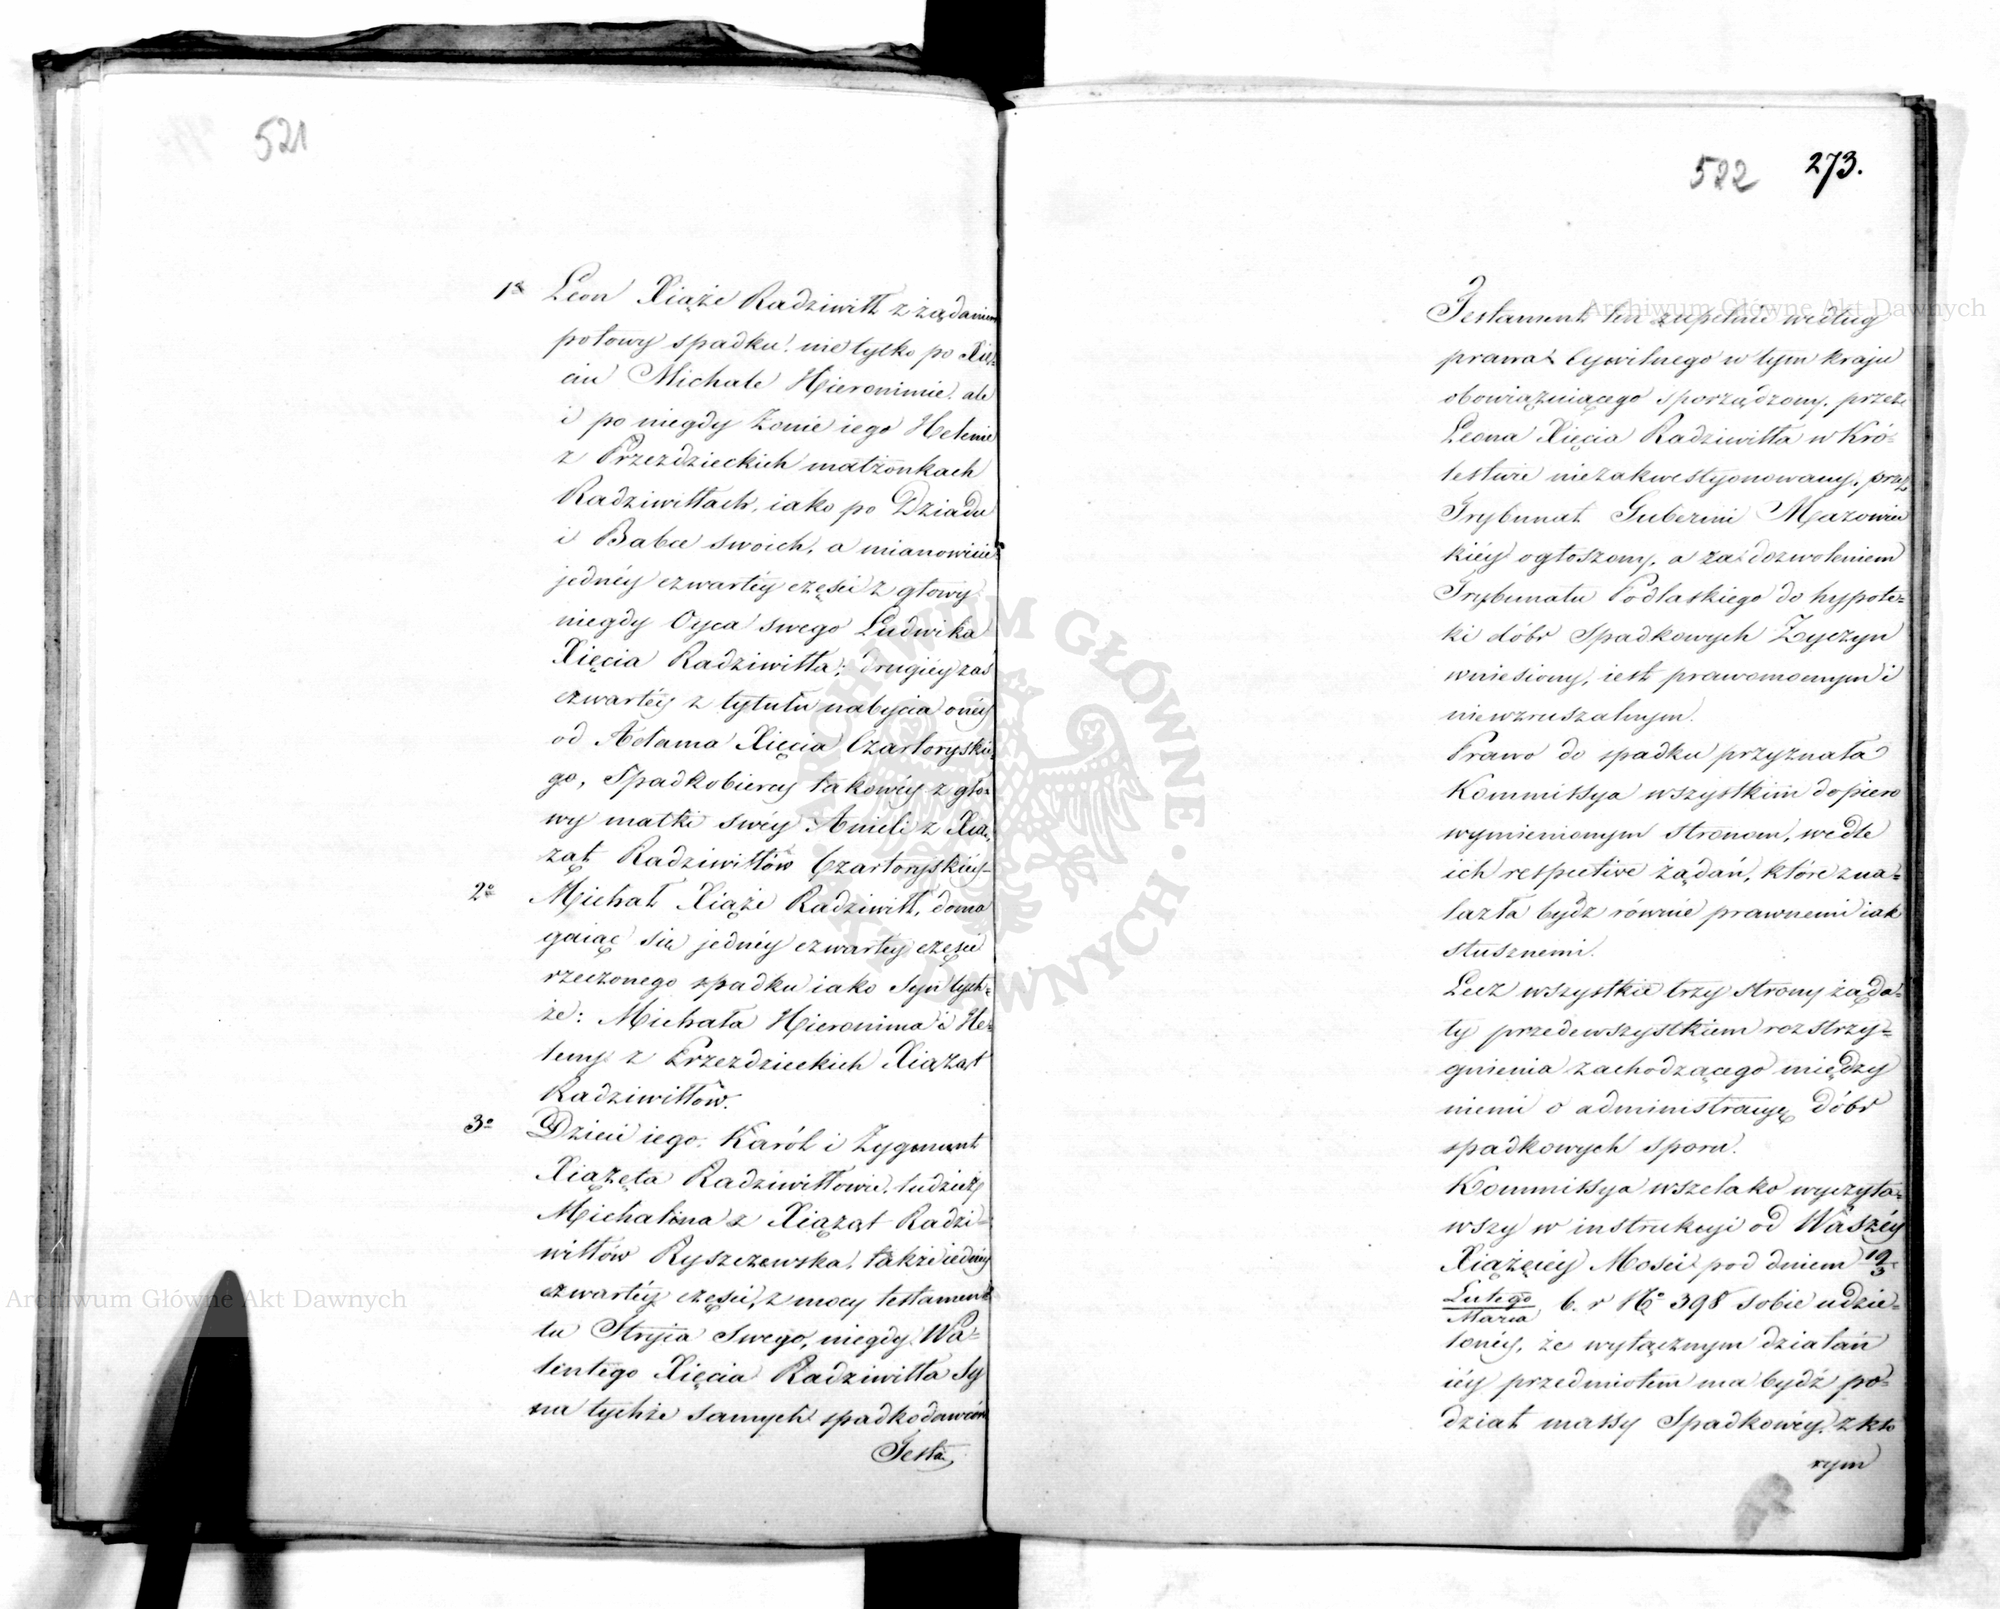 521
1º Leon Xiąże Radziwiłł z żądaniem
połowy spadku nie tylko po Xię-
ciu Michale Hieronimie ale
i po niegdy Żonie iego Helenie
z Przezdzieckich małżonkach
Radziwiłłach, iako po Dziadu
i Babce swoich, a mianowicie
jednéy czwartéy części z głowy
niegdy Oyca swego Ludwika
Xięcia Radziwiłła; drugiéy zaś
czwartéy z tytułu nabycia onéy
od Adama Xięcia Czartoryskie-
go, Spadkobiercy takowéy z gło-
wy matki swéy Anieli z Xią-
żąt Radziwiłłów Czartoryskiéy
2º Michał Xiąże Radziwiłł, doma
gaiąc się jednéy czwartéy części
rzeczonego spadku iako Syn tych-
że: Michała Hieronima i He-
leny z Przezdzieckich Xiążąt
Radziwiłłów.
3º Dzieci iego: Karól i Zygmunt
Xiążęta Radziwiłłowie, tudzież
Michalina z Xiążąt Radzi-
wiłłów Ryszczewska, także iednéy
czwartéy części, z mocy testamen-
tu Stryia Swego, niegdy Wa-
lentego Xięcia Radziwiłła Sy
na tychże samych spadkodawców
Testa
522 273.
Testament ten zupełnie według
prawa Cywilnego w tym kraju
obowiązuiącego sporządzony, przez
Leona Xięcia Radziwiłła w Kró-
lestwie niezakwestyonowany, przez
Trybunał Gubernii Mazowiec
kiéy ogłoszony, a za dozwoleniem
Trybunału Podlaskiego do hypote-
ki dóbr Spadkowych Życzyn
wniesiony, iest prawomocnym i
niewzruszalnym.
Prawo do spadku przyznała
Kommissya wszystkim dopiero
wymienionym stronom, wedle
ich respective żądań, które zna-
lazła bydź równie prawnemi iak
słusznemi.
Lecz wszystkie trzy strony żąda-
ły przedewszystkiem rozstrzy-
gnienia zachodzącego między
niemi o administracyę dóbr
spadkowych sporu.
Kommissya wszelako wyczyta-
wszy w instrukcyi od Waszéy
Xiążęcéy Mości pod dniem 19/3
Lutego/Marca b. r Nº 398 sobie udzie-
lonéy, że wyłącznym działań
iéy przedmiotem ma bydź po-
dział massy Spadkowéy, z któ
rym
Archiwum Główne Akt Dawnych
Archiwum Główne Akt Dawnych
ARCHIWUM GŁÓWNE AKT DAWNYCH